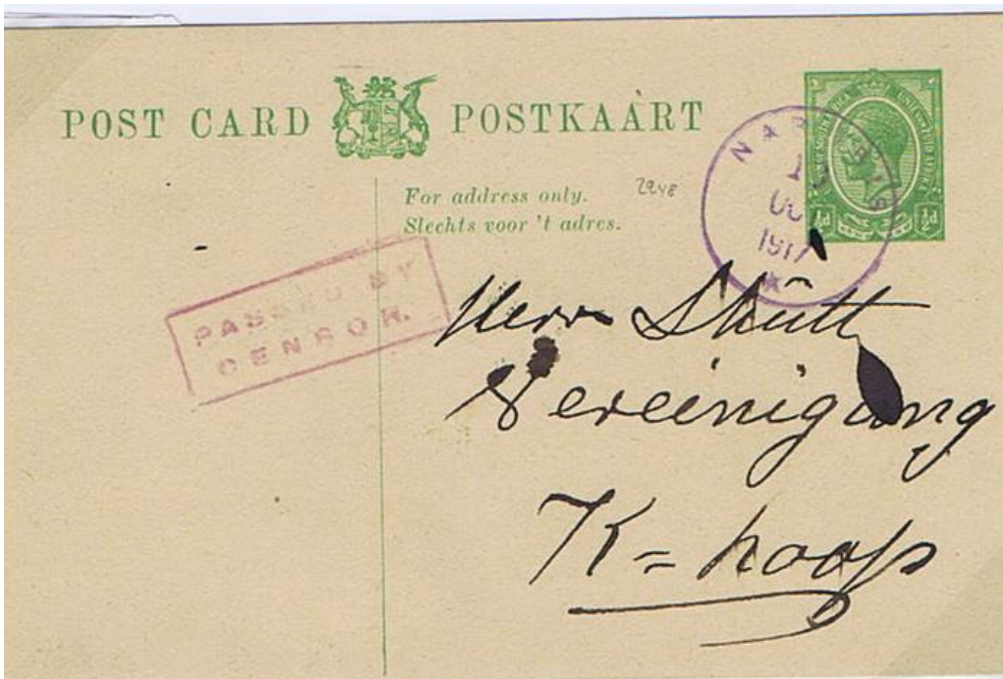 POST CARD POSTKAART
For address only.
Slechts voor 't adres.
2248
½d ½d
1917
PASSED BY
CENSOR.
Herr Shütt
Vereinigung
K=hoop